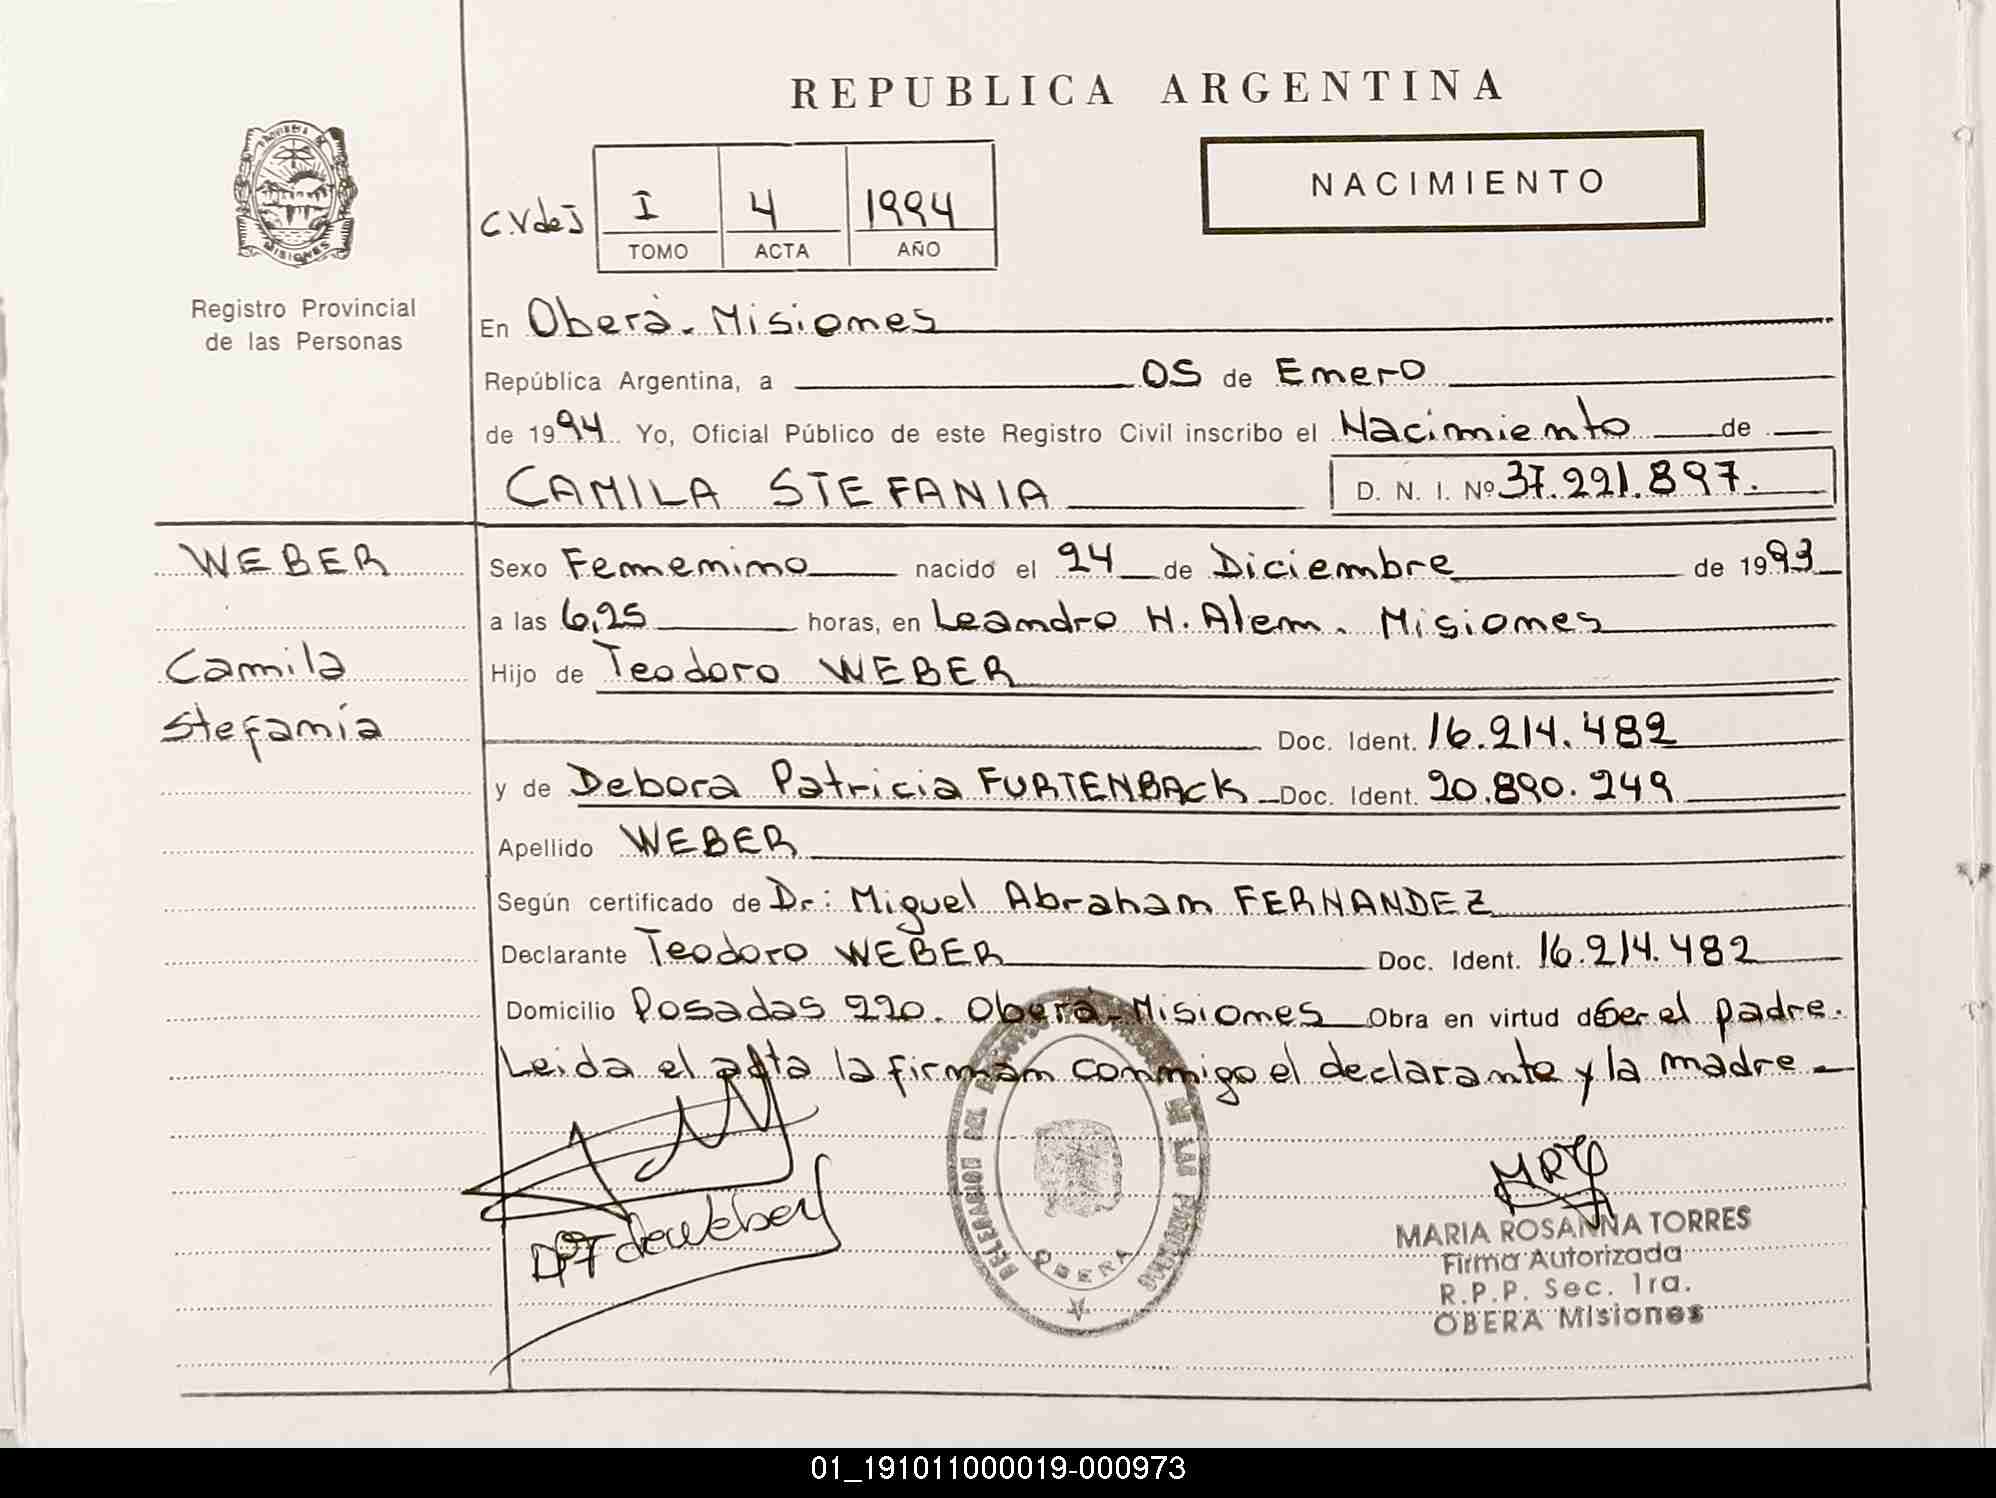 REPUBLICA ARGENTINA
NACIMIENTO
C.V de J
I 4 1994
TOMO ACTA AÑO
MISIONES
Registro Provincial
de las Personas
En Oberá - Misiones
República Argentina, a 05 de Enero
de 1994 Yo, Oficial Público de este Registro Civil inscribo el Nacimiento de
CAMILA STEFANIA D. N. I. Nº 37.221.897.
WEBER
Camila
Stefania
Sexo Femenino nacido el 24 de Diciembre de 1993
a las 6,25 horas, en Leandro N. Alem. Misiones
Hijo de Teodoro WEBER
Doc. Ident. 16.214.482
y de Debora Patricia FURTENBACK Doc. Ident. 20.890.249
Apellido WEBER
Según certificado de Dr: Miguel Abraham FERNANDEZ
Declarante Teodoro WEBER Doc. Ident. 16.214.482
Domicilio Posadas 220. Oberá - Misiones Obra en virtud de Ser el padre.
Leida el acta la firman conmigo el declarante y la madre -
DELEGACION DEL REGISTRO DE LAS PERSONAS
OBERA
MARIA ROSANNA TORRES
Firma Autorizada
R.P.P. Sec. 1ra.
OBERA Misiones
01_191011000019-000973